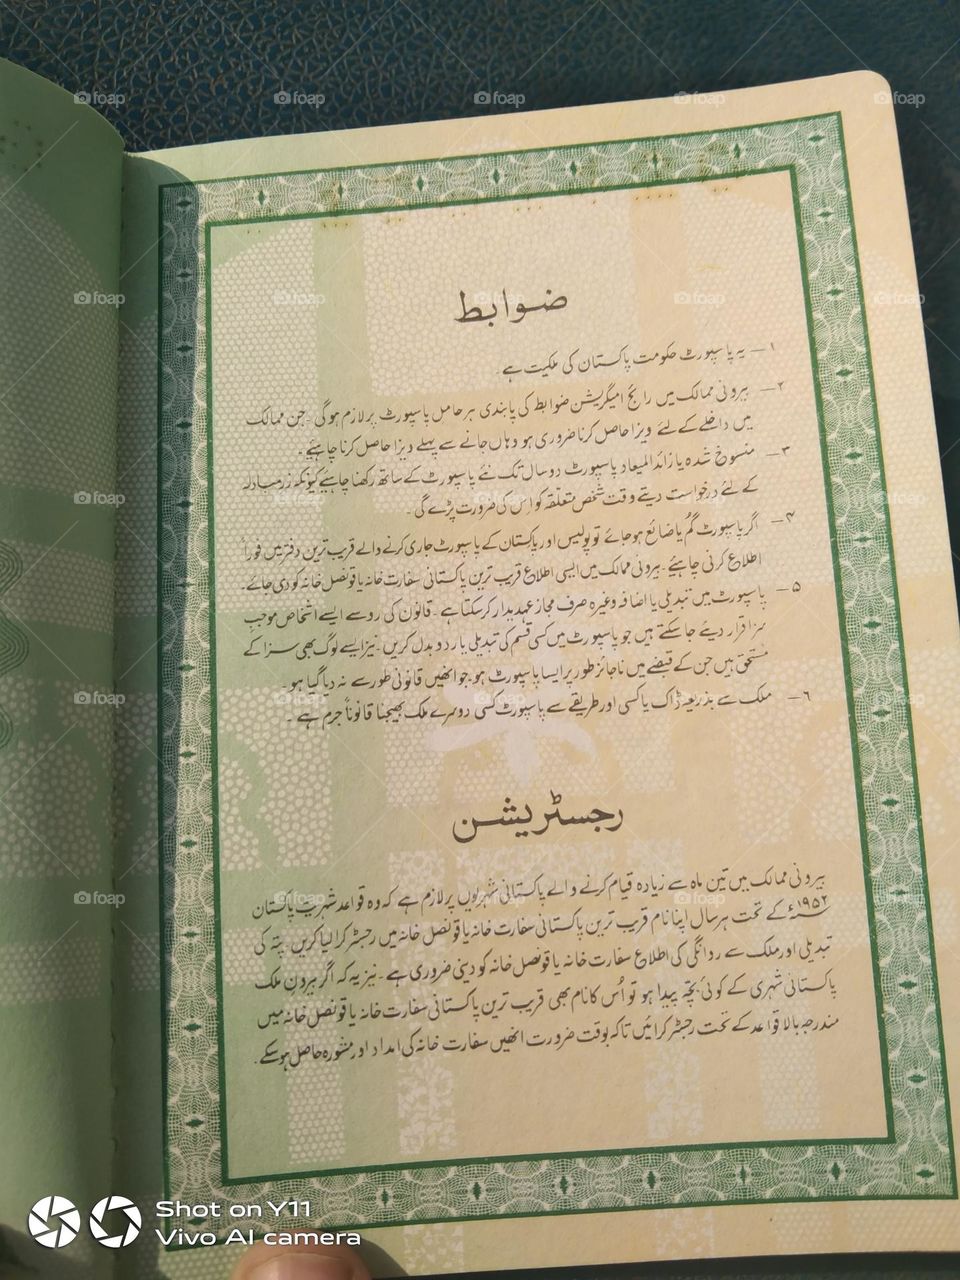 ضوابط
۱ — یہ پاسپورٹ حکومت پاکستان کی ملکیت ہے۔
۲ — بیرونی ممالک میں رائج امیگریشن ضوابط کی پابندی ہر حامل پاسپورٹ پر لازم ہوگی۔ جن ممالک
میں داخلے کے لئے ویزا حاصل کرنا ضروری ہو وہاں جانے سے پہلے ویزا حاصل کرنا چاہیئے۔
۳ — منسوخ شدہ یا زائد المیعاد پاسپورٹ دو سال تک نئے پاسپورٹ کے ساتھ رکھنا چاہیئے کیونکہ زرمبادلہ
کے لئے درخواست دیتے وقت شخص متعلقہ کو اس کی ضرورت پڑے گی۔
۴ — اگر پاسپورٹ گم یا ضائع ہو جائے تو پولیس اور پاکستان کے پاسپورٹ جاری کرنے والے قریب ترین دفتر میں فوراً
اطلاع کرنی چاہیئے۔ بیرونی ممالک میں ایسی اطلاع قریب ترین پاکستانی سفارت خانہ یا قونصل خانہ کو دی جائے۔
۵ — پاسپورٹ میں تبدیلی یا اضافہ وغیرہ صرف مجاز عہدیدار کرسکتا ہے۔ قانون کی رو سے ایسے اشخاص موجب
سزا قرار دیئے جاسکتے ہیں جو پاسپورٹ میں کسی قسم کی تبدیلی یا ردوبدل کریں۔ نیز ایسے لوگ بھی سزا کے
مستحق ہیں جن کے قبضے میں ناجائز طور پر ایسا پاسپورٹ ہو۔ جو انھیں قانونی طور سے نہ دیا گیا ہو۔
۶ — ملک سے بذریعہ ڈاک یا کسی اور طریقے سے پاسپورٹ کسی دوسرے ملک بھیجنا قانوناً جرم ہے۔
رجسٹریشن
بیرونی ممالک میں تین ماہ سے زیادہ قیام کرنے والے پاکستانی شہریوں پر لازم ہے کہ وہ قواعد شہریت پاکستان
۱۹۵۲ء کے تحت ہر سال اپنا نام قریب ترین پاکستانی سفارت خانہ یا قونصل خانہ میں رجسٹر کرا لیا کریں۔ پتہ کی
تبدیلی اور ملک سے روانگی کی اطلاع سفارت خانہ یا قونصل خانہ کو دینی ضروری ہے۔ نیز یہ کہ اگر بیرون ملک
پاکستانی شہری کے کوئی بچہ پیدا ہو تو اُس کا نام بھی قریب ترین پاکستانی سفارت خانہ یا قونصل خانہ میں
مندرجہ بالا قواعد کے تحت رجسٹر کرائیں تاکہ بوقت ضرورت انھیں سفارت خانہ کی امداد اور مشورہ حاصل ہوسکے۔
Shot on Y11
Vivo AI camera
foap